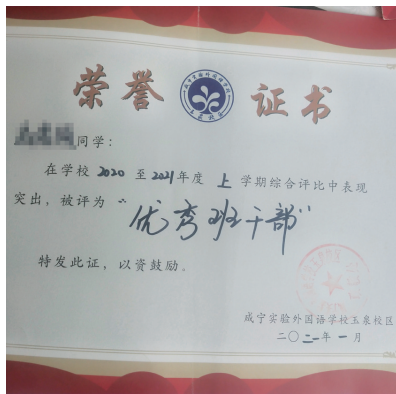 荣誉证书
同学：
在学校2020至2021年度上学期综合评比中表现
突出，被评为“优秀班干部”
特发此证，以资鼓励。
咸宁实验外国语学校玉泉校区
二〇二一年一月